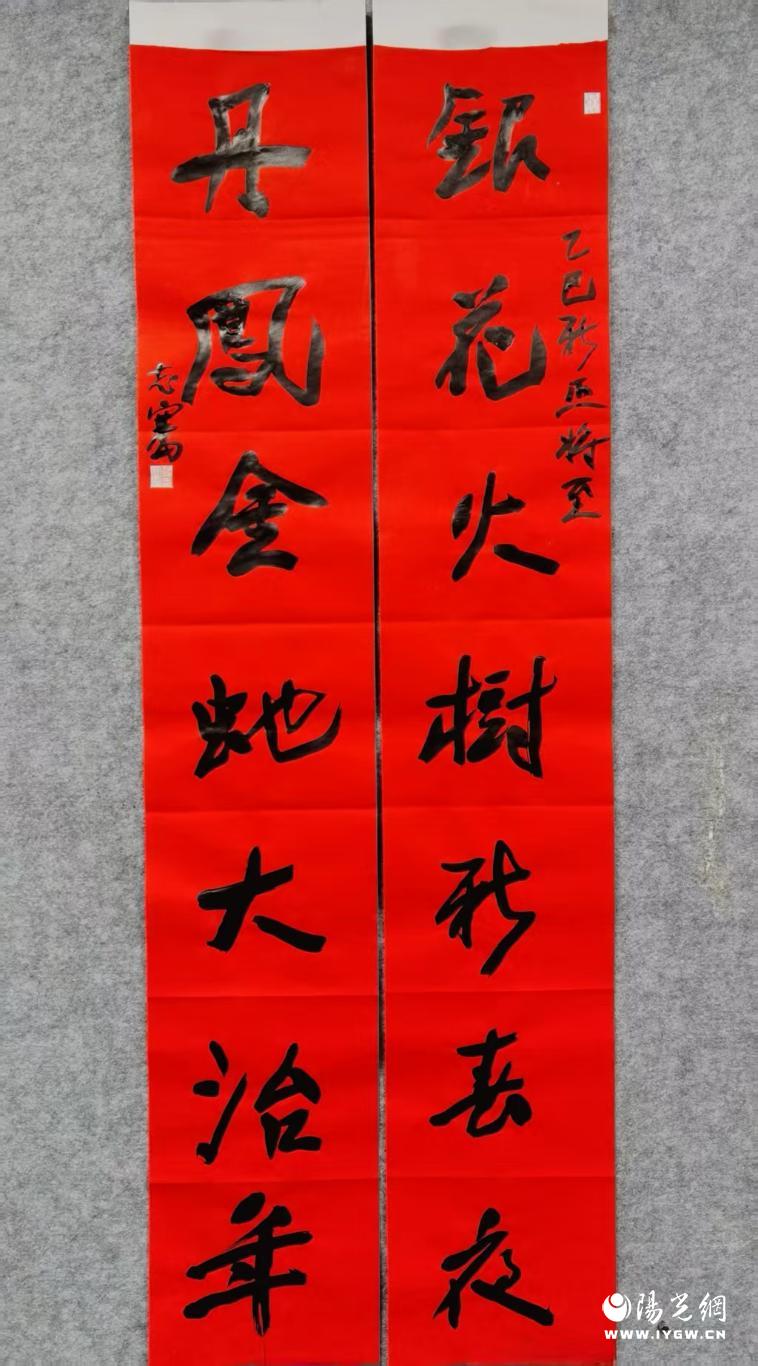 銀花火樹新春夜
乙巳新正将至
丹鳳金蛇大治年
志
陽光網
WWW.IYGW.CN